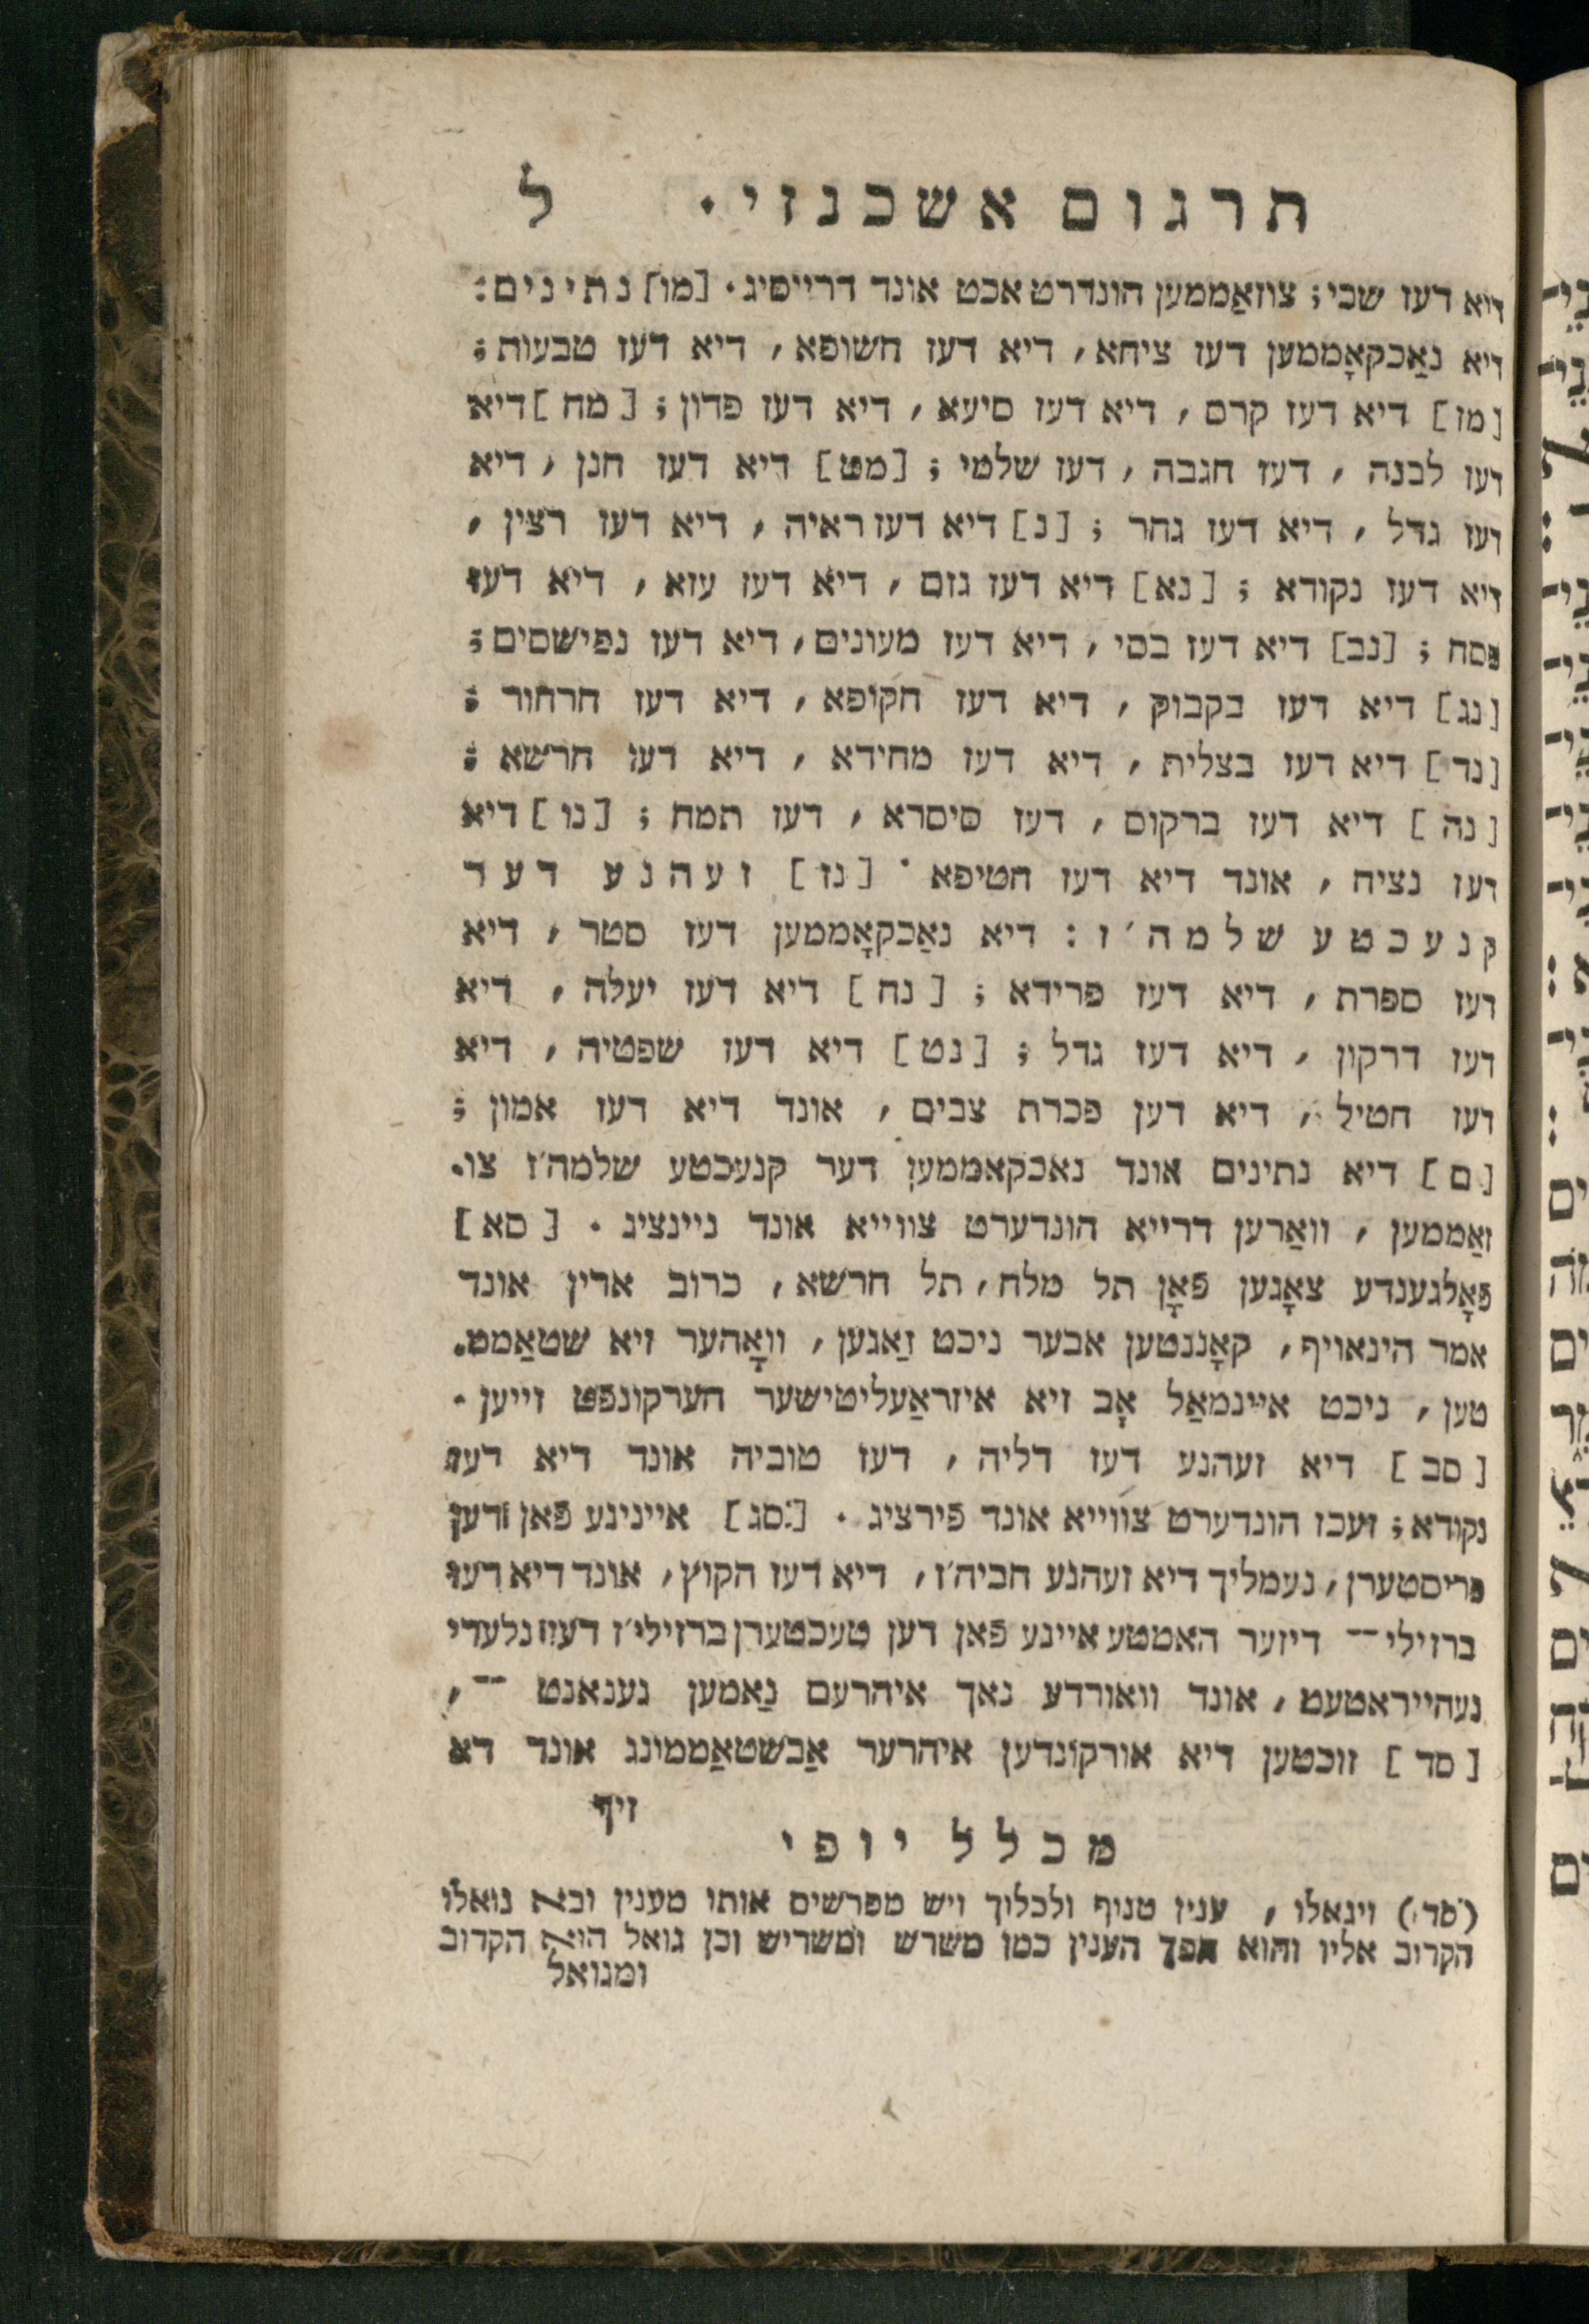 תרגום אשכנזי. ל
דיא דעז שבי; צוזאַממען הונדרט אכט אונד דרייסיג. [מו] נתינים:
דיא נאַכקאָממען דעז ציחא, דיא דעז חשופא, דיא דעז טבעות;
[מז] דיא דעז קרם, דיא דעז סיעא, דיא דעז פדון; [מח] דיא
דעז לבנה, דעז חגבה, דעז שלמי; [מט] דיא דעז חנן, דיא
דעז גדל, דיא דעז גחר; [נ] דיא דעז ראיה, דיא דעז רצין,
דיא דעז נקודא; [נא] דיא דעז גזם, דיא דעז עזא, דיא דעז
פסח; [נב] דיא דעז בסי, דיא דעז מעונים, דיא דעז נפישסים;
[נג] דיא דעז בקבוק, דיא דעז חקופא, דיא דעז חרחור;
[נד] דיא דעז בצלית, דיא דעז מחידא, דיא דעז חרשא;
[נה] דיא דעז ברקוס, דעז סיסרא, דעז תמח; [נו] דיא
דעז נציח, אונד דיא דעז חטיפא. [נז] זעהנע דער
קנעכטע שלמה'ז: דיא נאַכקאָממען דעז סטר, דיא
דעז ספרת, דיא דעז פרידא; [נח] דיא דעז יעלה, דיא
דעז דרקון, דיא דעז גדל; [נט] דיא דעז שפטיה, דיא
דעז חטיל, דיא דען פכרת צבים, אונד דיא דעז אמון;
[ס] דיא נתינים אונד נאכקאממען דער קנעכטע שלמה'ז צו.
זאַממען, וואַרען דרייא הונדערט צווייא אונד ניינציג. [סא]
פֿאָלגענדע צאָגען פֿאָן תל מלח, תל חרשא, כרוב אדין אונד
אמר הינאויף, קאָננטען אבער ניכט זאַגען, וואָהער זיא שטאַממ.
טען, ניכט איינמאַל אָב זיא איזראַעליטישער הערקונפֿט זייען.
[סב] דיא זעהנע דעז דליה, דעז טוביה אונד דיא דעז
נקודא; זעכז הונדערט צווייא אונד פֿירציג. [סג] אייניגע פֿאן דען
פריסטערן, נעמליך דיא זעהנע חביה'ז, דיא דעז הקוץ, אונד דיא דעז
ברזילי — דיזער האטטע איינע פֿאן דען טעכטערן ברזילי'ז דעז גלעדי
געהייראטעט, אונד וואורדע נאך איהרעם נאַמען גענאנט —,
[סד] זוכטען דיא אורקונדען איהרער אַבשטאַממונג אונד דא
זיך
מכלל יופי
(סד) ויגאלו, ענין טנוף ולכלוך ויש מפרשים אותו מענין ובא גואלו
הקרוב אליו והוא הפך הענין כמו משרש ומשריש וכן גואל הוא הקרוב
ומגואל